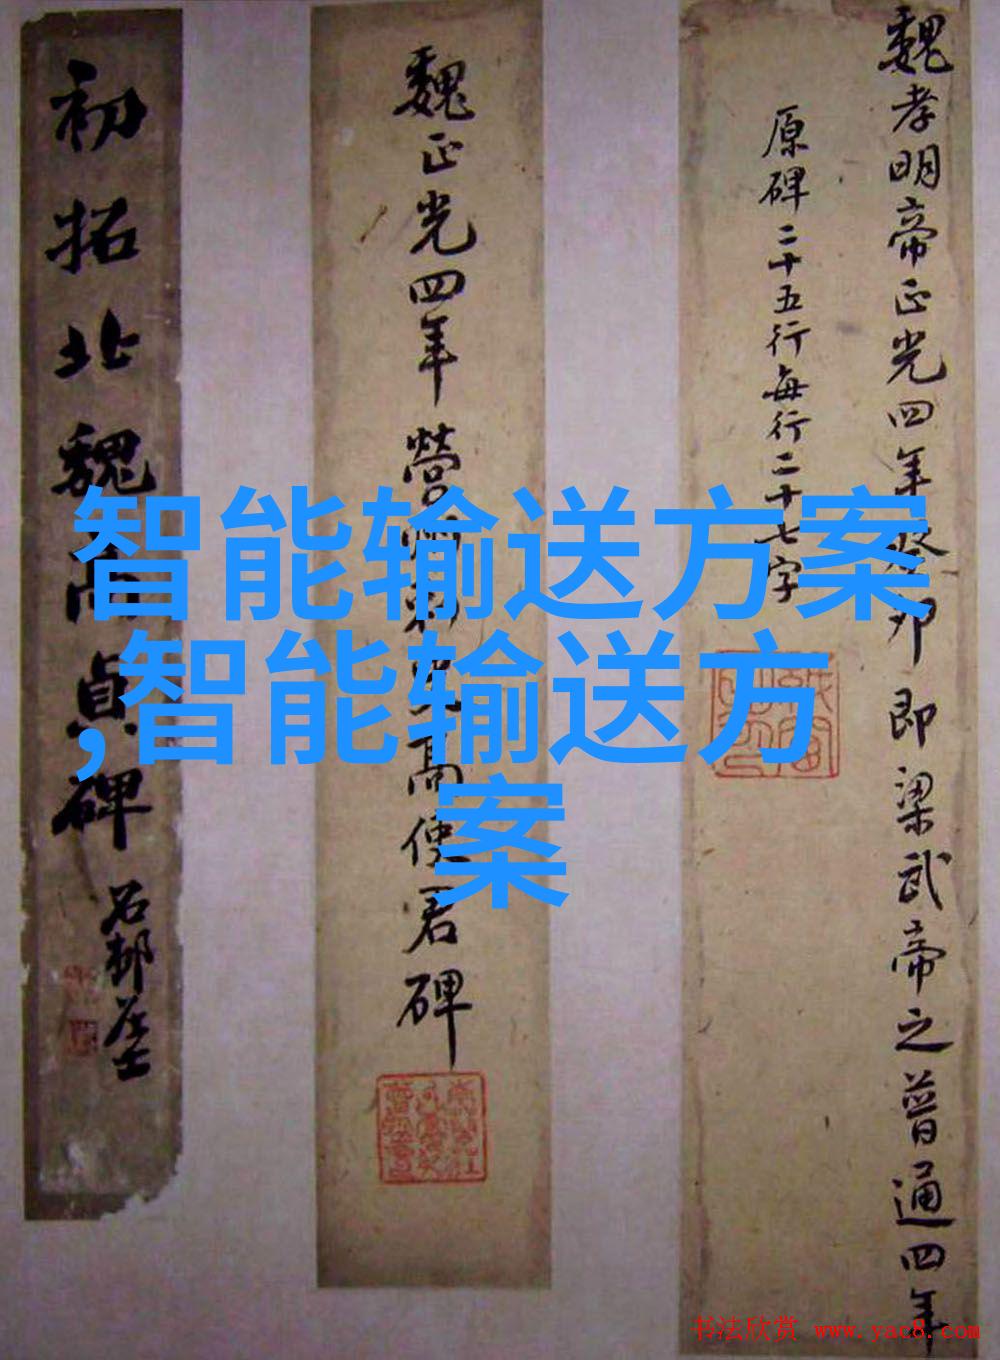 魏孝明帝正光四年癸卯即梁武帝之普通四年
原碑二十五行每行二十七字
魏正光四年營州刺史高使君碑
初拓北魏高貞碑
石邨
智能输送方案
,智能输送方
案
书法欣赏 www.yac8.com